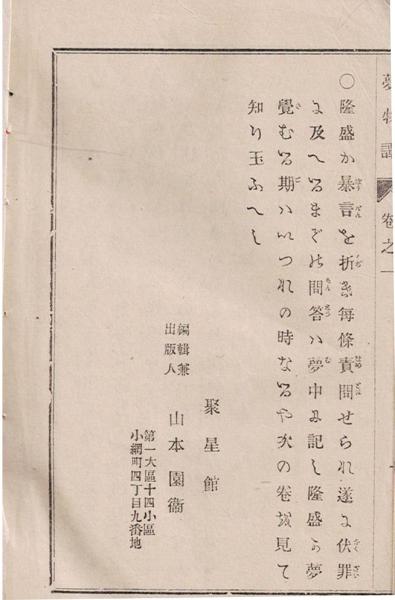 夢物語 卷之一
○隆盛か暴言を折き每條責問せられ遂に伏罪
に及へるまての問答ハ夢中に記し隆盛か夢
覺むる期ハいつれの時なるや次の卷を見て
知り玉ふへし
編輯兼出版人
聚星館
山本園衞
第一大區十四小區
小網町四丁目九番地